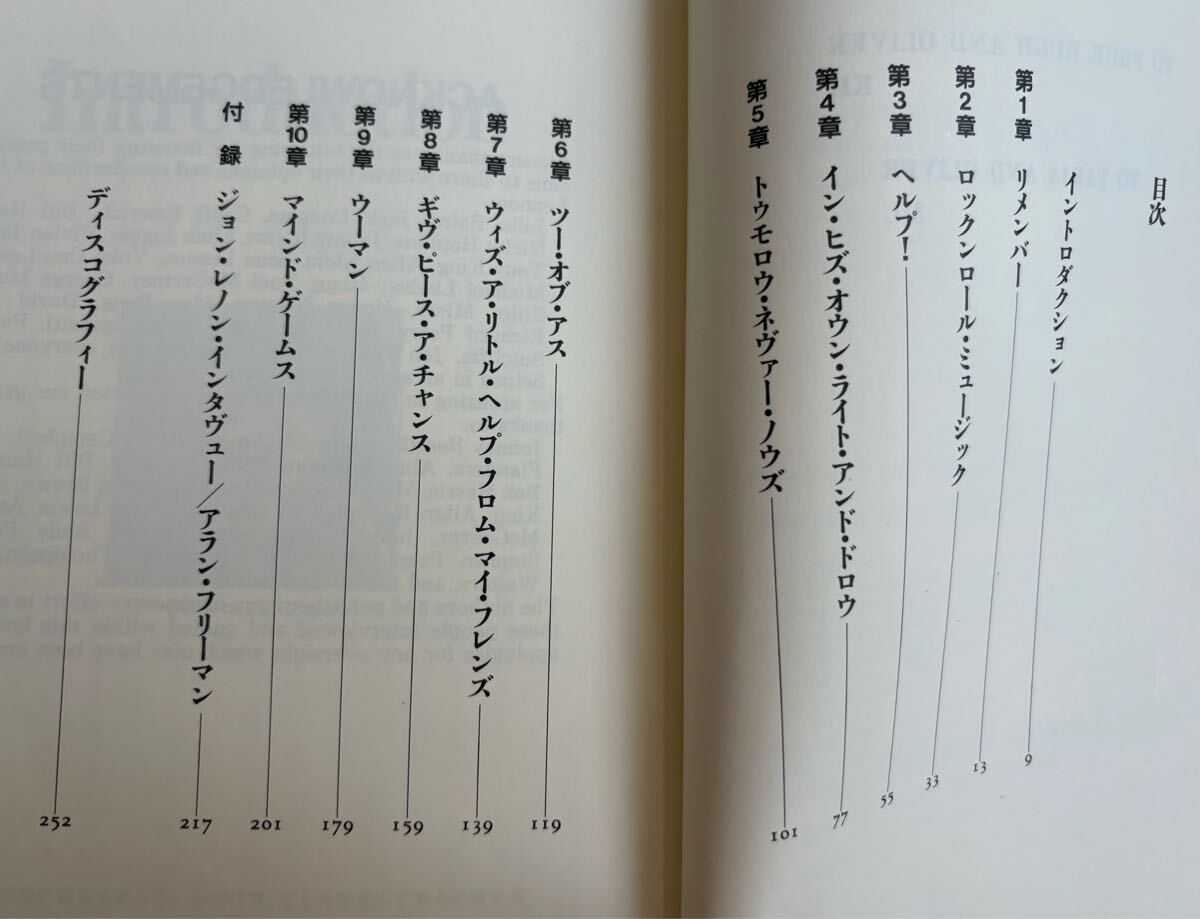 目次
イントロダクション 9
第1章 リメンバー 13
第2章 ロックンロール・ミュージック 33
第3章 ヘルプ! 55
第4章 イン・ヒズ・オウン・ライト・アンド・ドロウ 77
第5章 トゥモロウ・ネヴァー・ノウズ 101
第6章 ツー・オブ・アス 119
第7章 ウィズ・ア・リトル・ヘルプ・フロム・マイ・フレンズ 139
第8章 ギヴ・ピース・ア・チャンス 159
第9章 ウーマン 179
第10章 マインド・ゲームス 201
付録 ジョンレノン・インタヴュー/アラン・フリーマン 217
ディスコグラフィー 252